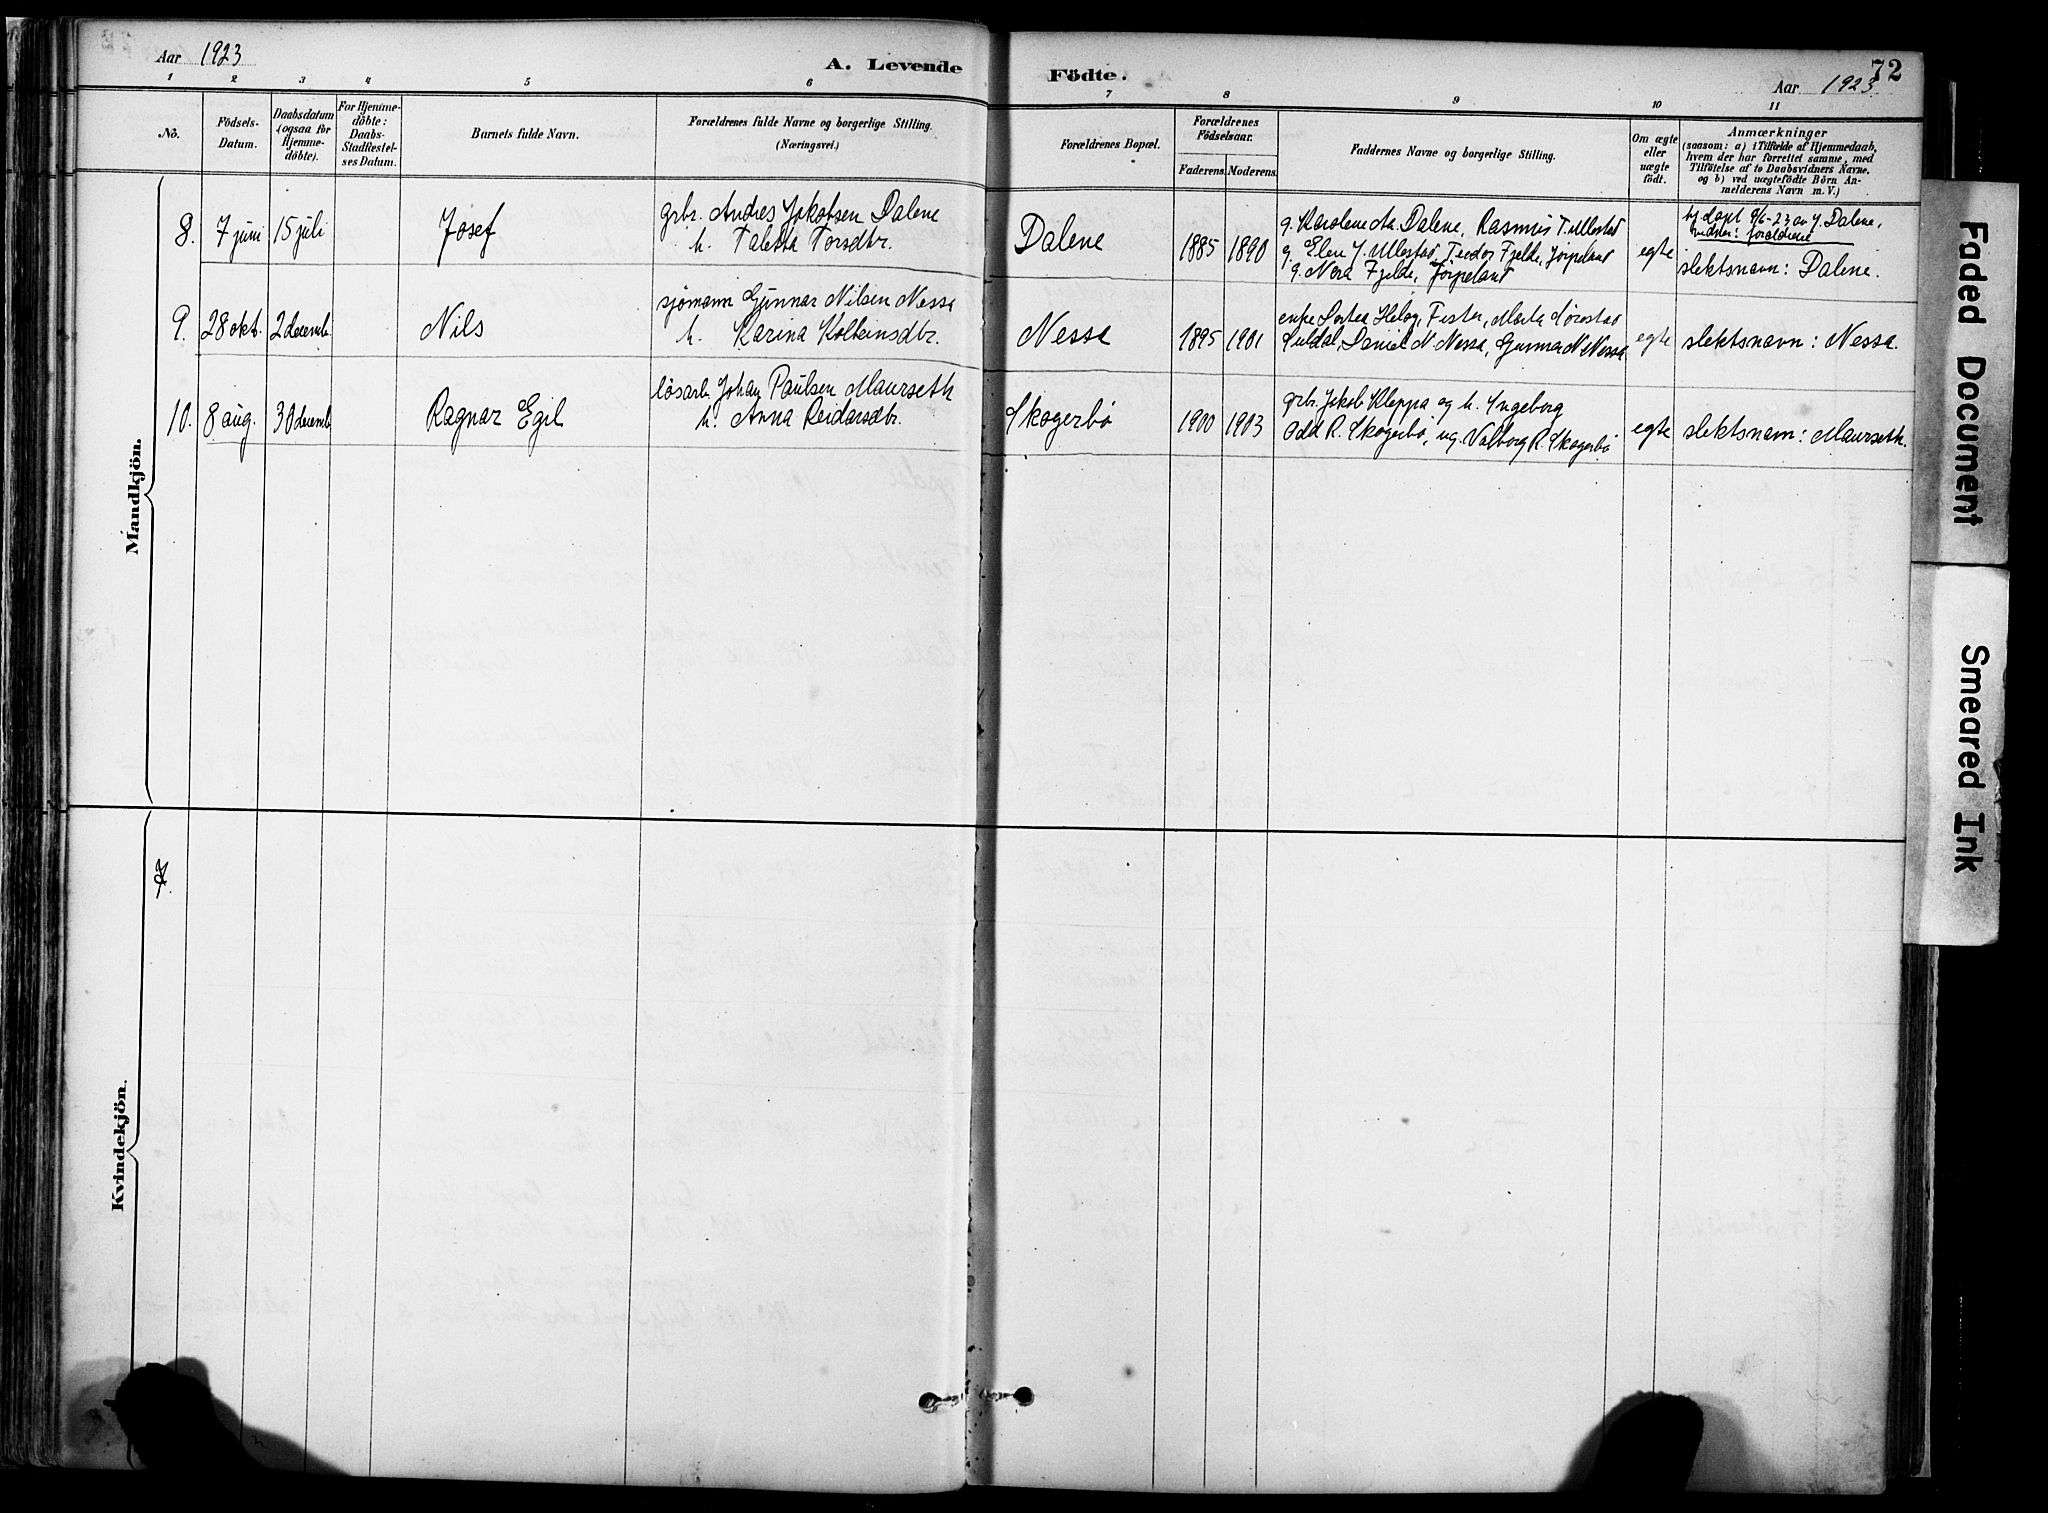 Aar 1923
A. Levende Födte.
72
Aar 1923
1 2 3 4 5 6 7 8 9 10 11
No.
Födsels-
Datum.
Daabsdatum
(ogsaa for
Hjemme-
döbte).
For Hjemme-
döbte:
Daabs-
Stadfæstel-
ses Datum.
Barnets fulde Navn.
Forældrenes fulde Navne og borgerlige Stilling.
(Næringsvei.)
Forældrenes Bopæl.
Forældrenes
Födselsaar.
Faderens. Moderens.
Faddernes Navne og borgerlige Stilling.
Om ægte
eller
uægte
födt.
Anmærkninger
(saasom: a) i Tilfælde af Hjemmedaab,
hvem der har forrettet samme, med
Tilföielse af to Daabsvidners Navne.
og b) ved uægtefödte Börn An-
melderens Navn m. V.)
Mandkjön.
8. 7 juni 15 juli Josef
grbr. Andres Jakobsen Dalene
h. Taletta Torsdtr.
Dalene 1885 1890
g. Karolene Dalene, Rasmus T. Ullestad
g. Elen J. Ullestad, Teodor Fjelde, Jørpeland
g. Nora Fjelde, Jørpeland
egte
hj.døpt 9/6-23 av J. Dalene,
vidner: foreldrene
slektsnavn: Dalene.
9. 28 okt. 2 decemb Nils
sjömann Gunnar Nilsen Nessa
h. Karina Kolbeinsdtr.
Nessa 1895 1901
enke Helög, Fister, Marta
Suldal, Daniel N. Nessa, Gunnar N. Nessa
egte slektsnavn: Nessa.
10. 8 aug. 30 decemb Ragnar Egil
løsarb. Johan Paulsen Maurseth
h. Anna Reidarsdtr.
Skogerbö 1900 1903
grbr. Jakob Kleppa og h. Ingeborg
Odd R. Skogerbö, ug. Valborg R. Skogerbö
egte slektsnavn: Maurseth.
Kvindekjön.
Faded Document
Smeared Ink